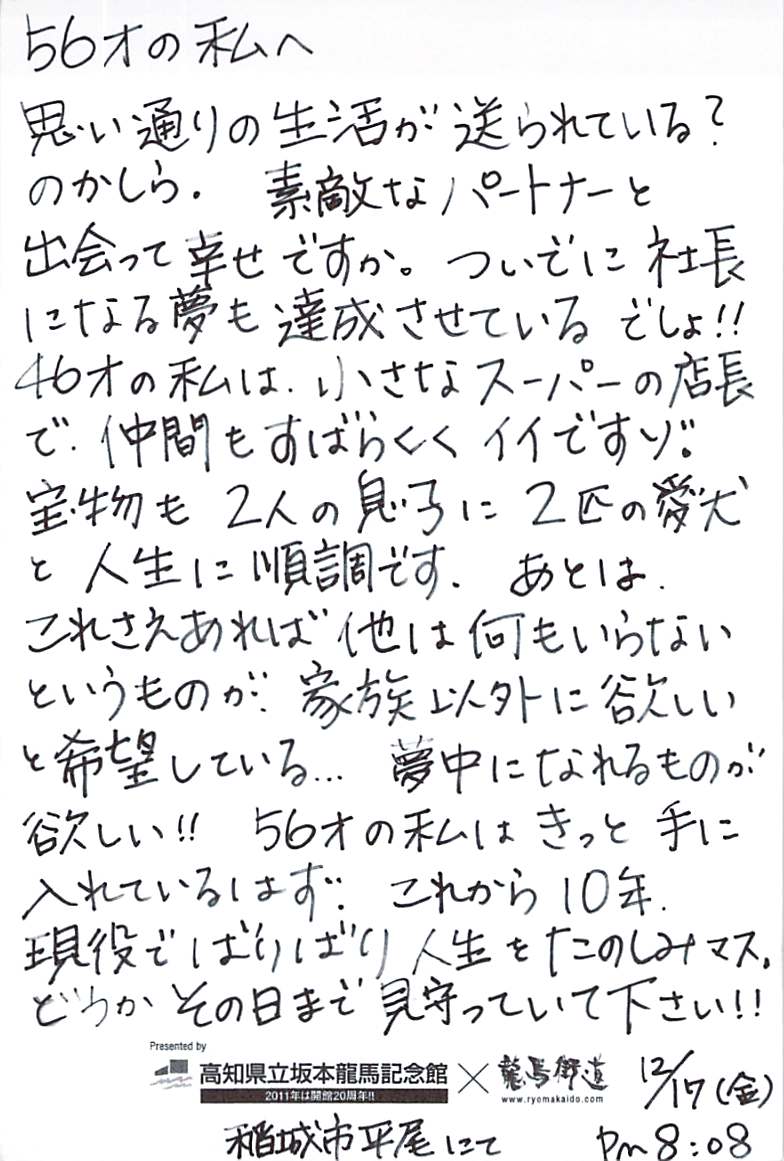 56才の私へ
思い通りの生活が送られている?
のかしら. 素敵なパートナーと
出会って幸せですか。ついでに社長
になる夢も達成させているでしょ!!
46才の私は、小さなスーパーの店長
で、仲間もすばらしくイイですゾ。
宝物も2人の息子に2匹の愛犬
と人生に順調です. あとは、
これさえあれば他は何もいらない
というものが、家族以外に欲しい
と希望している... 夢中になれるものが
欲しい!! 56才の私はきっと手に
入れているはず。これから10年、
現役でばりばり人生をたのしみマス。
どうかその日まで見守っていて下さい!!
Presented by
高知県立坂本龍馬記念館 × 龍馬街道
2011年は開館20周年!! www.ryomakaido.com
12/17(金)
稲城市平尾にて Pm 8:08